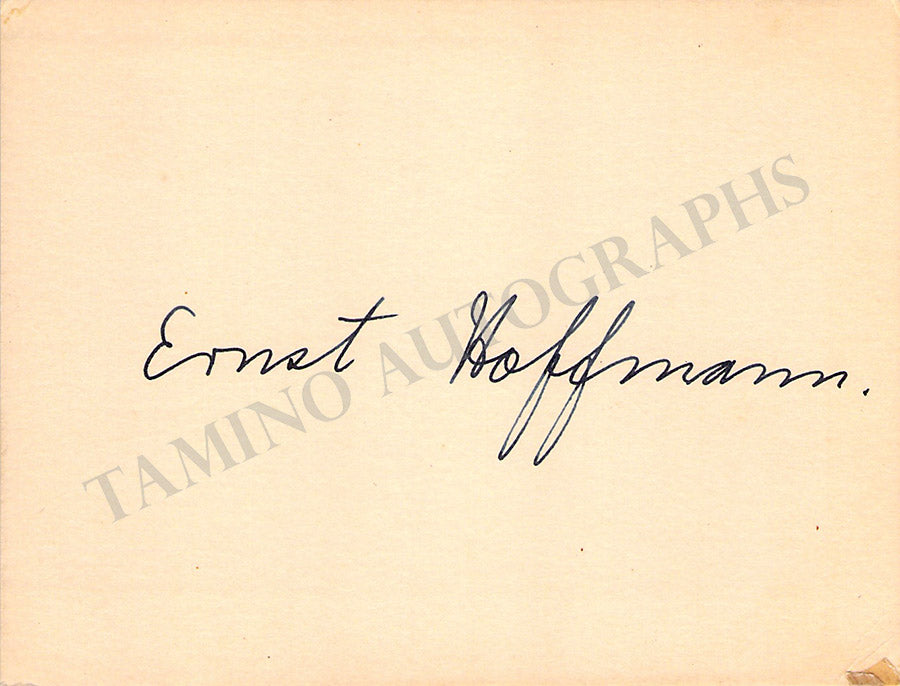 Ernst Hoffmann.
TAMINO AUTOGRAPHS